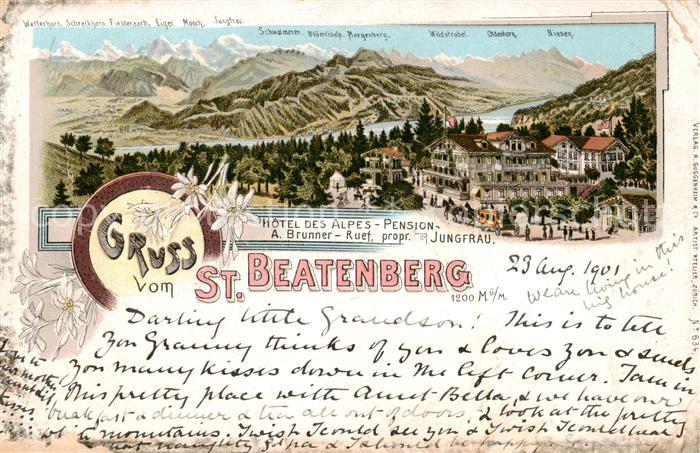 Wetterhorn. Schreckhorn. Finsteraarh. Eiger. Mönch. Jungfrau.
Schwalmeren. Blümlisalp. Morgenberg. Wildstrubel. Oldenhorn. Niesen.
GRUSS
vom
HÔTEL DES ALPES - PENSION
A. Brunner - Ruef, propr. JUNGFRAU.
ST. BEATENBERG
1200 M ü/M.
23 Aug. 1901
We are living in this
big house!
Darling little Grandson! This is to tell
you Granny thinks of you & loves you & sends
you many kisses down in the left corner. I am in
this pretty place with Aunt Bella, & we have our
breakfast & dinner & tea all out of doors, & look at the pretty
mountains. I wish I could see you & I wish I could hear
that naughty & I should be happy
VERLAG V. GUGGENHEIM & ARTIST. ATELIER, ZÜRICH. No 634